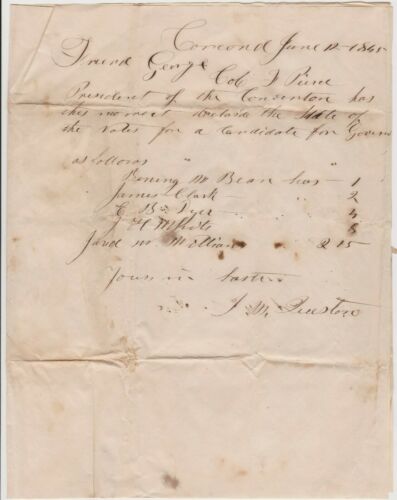 Concord June 12 1845
Friend George
Col. F Pierce
President of the Convention has
this moment declared the State of
the Votes for a Candidate for Govern
as follows "
Bening M Bean has 1
James Clark 2
J H White 8
Jared W Williams 215
Yours in haste
J M